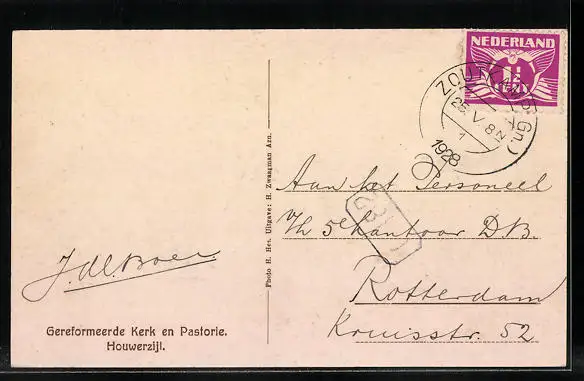 NEDERLAND
1½
CENT
ZOUTKAMP (Gn.)
25.V.8N
1
1928
Aan het Personeel
V/h 5e kantoor D.B.
Rotterdam
Kruisstr. 52
J. de Boer
Gereformeerde Kerk en Pastorie.
Houwerzijl.
Photo H. Hes. Uitgave: H. Zwaagman Azn.